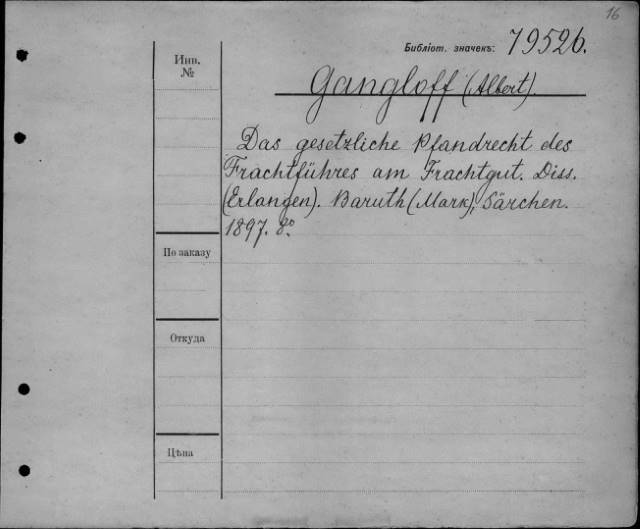 16
Библіот. значекъ: 79526.
Инв.
№
Gangloff (Albert).
Das gesetzliche Pfandrecht des
Frachtführes am Frachtgut. Diss.
(Erlangen). Baruth (Mark), Särchen.
1897. 8º.
По заказу
Откуда
Цѣна